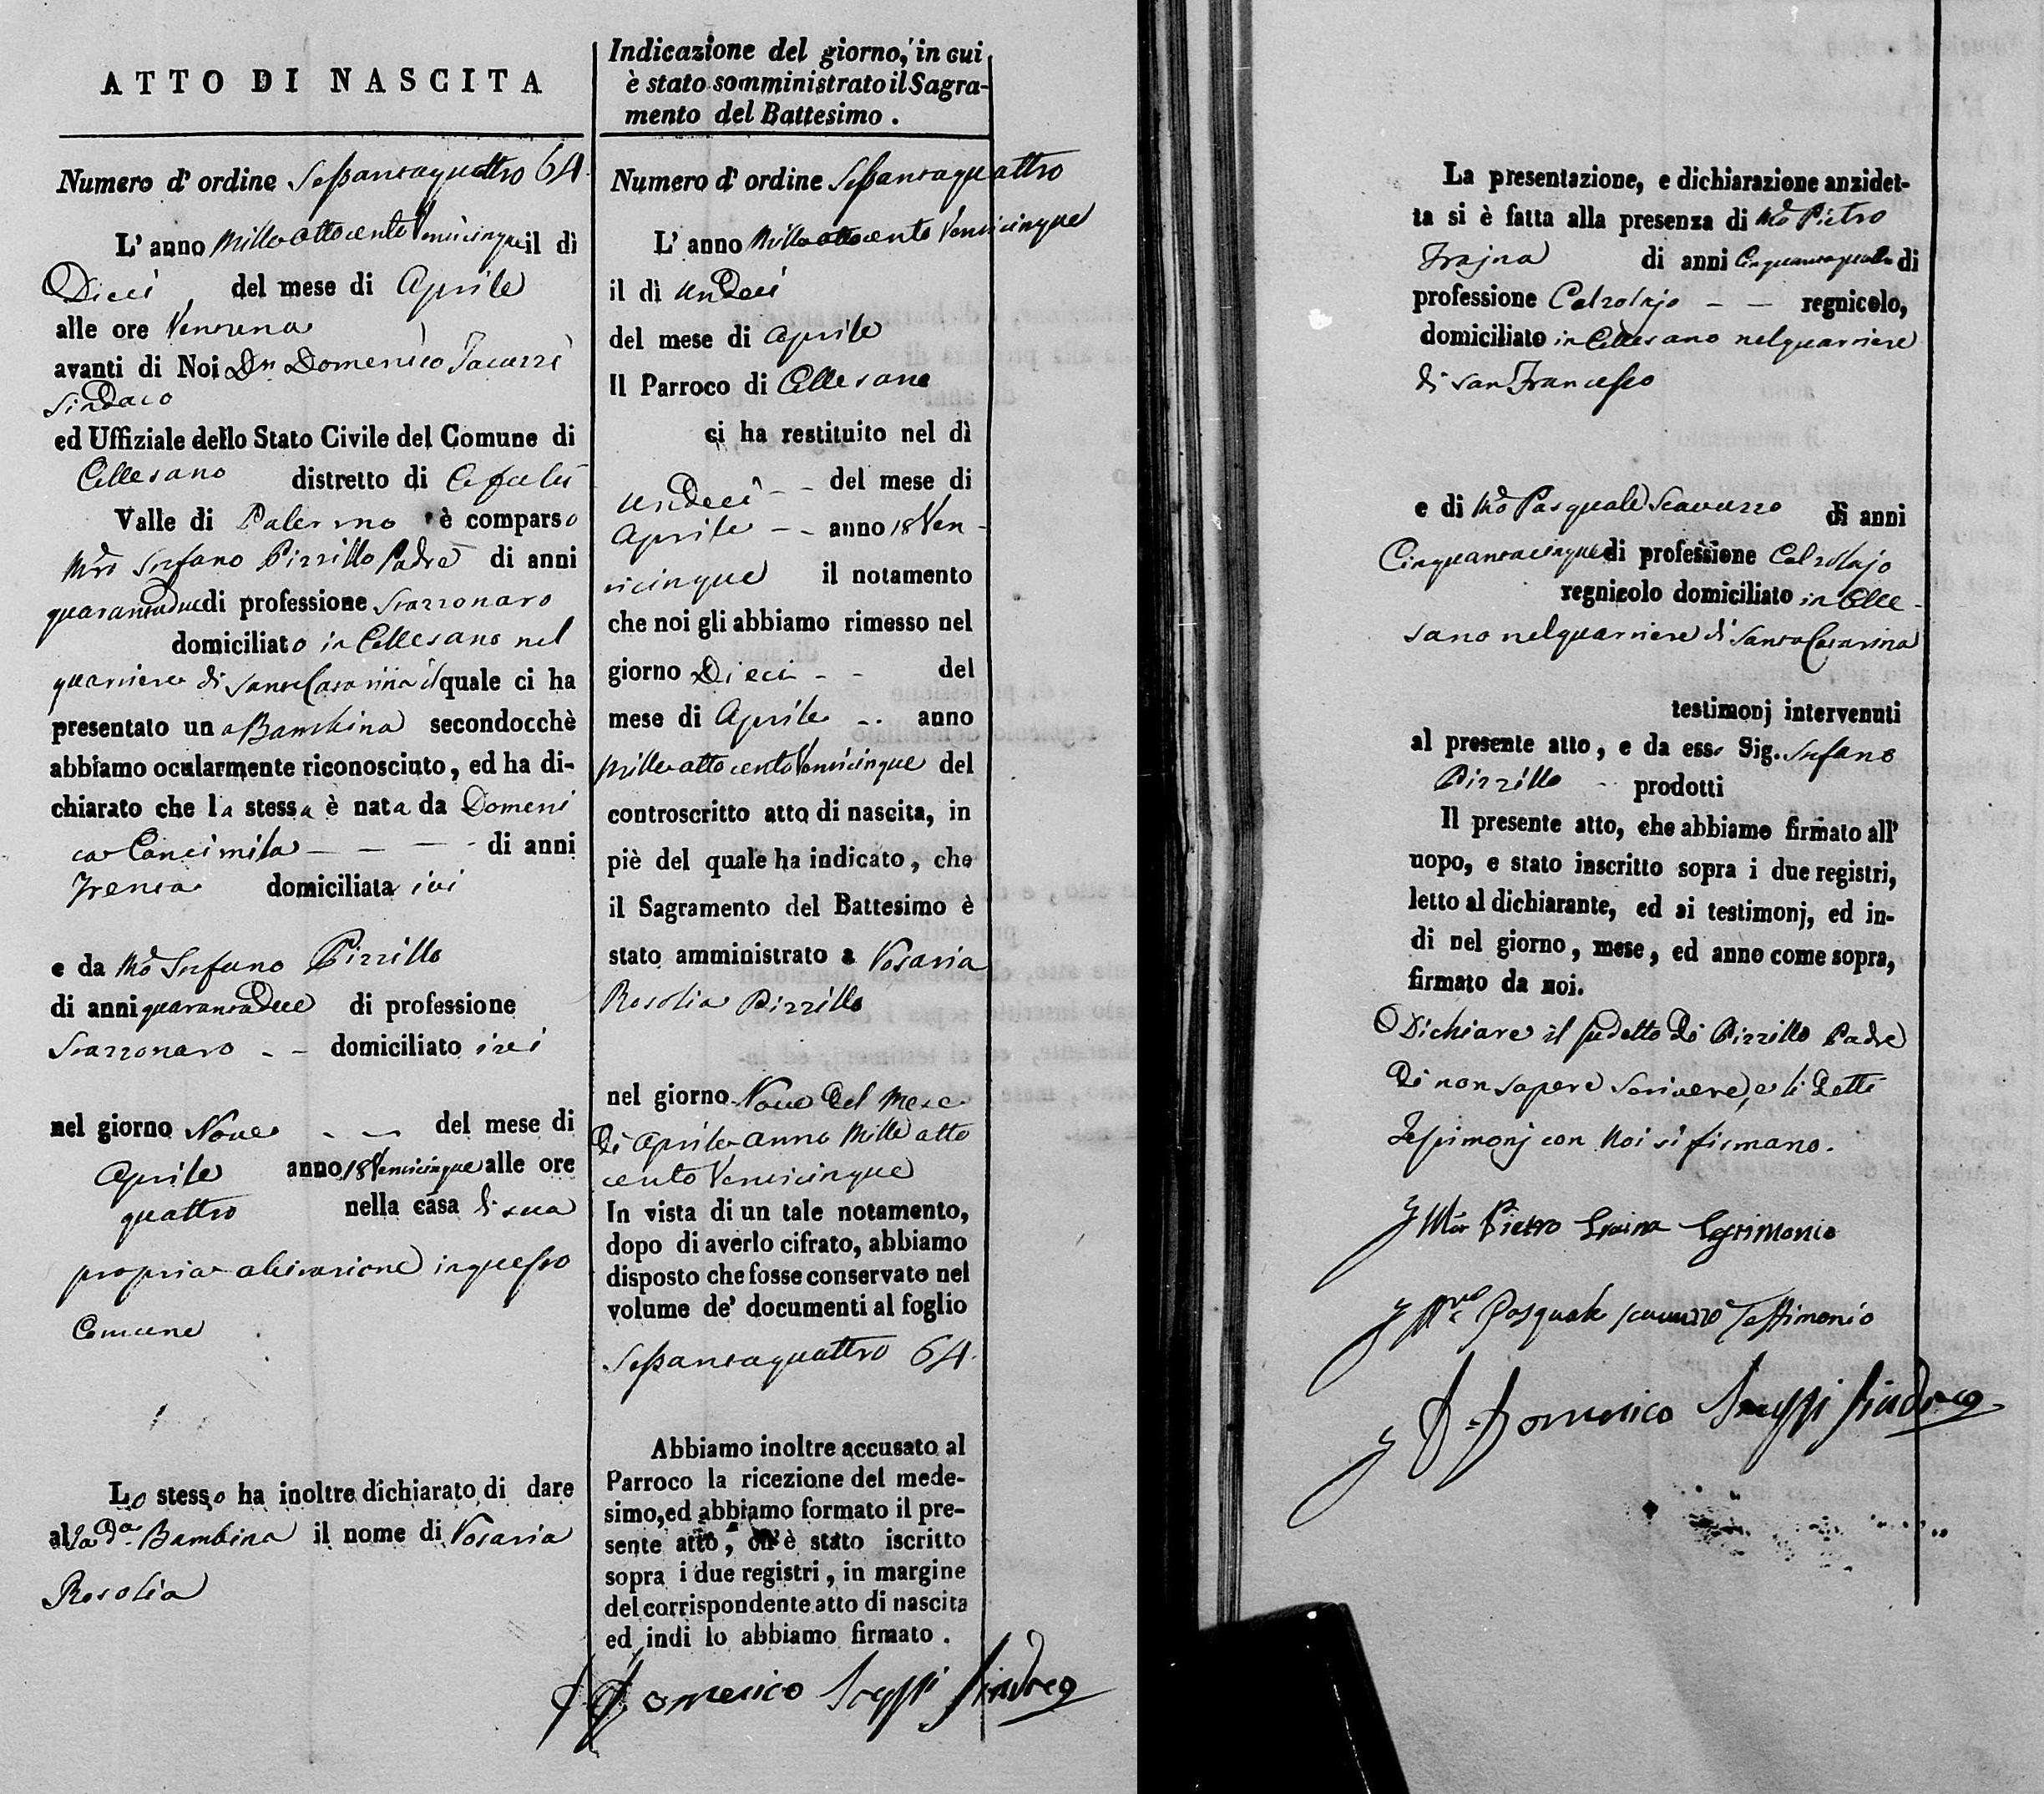 ATTO DI NASCITA
Numero d' ordine Sessantaquattro 64.
L' anno Milleottocento Venticinque il dì
Dieci del mese di Aprile
alle ore Ventuna
avanti di Noi Dn Domenico
Sindaco
ed Uffiziale dello Stato Civile del Comune di
Collesano distretto di Cefalù
Valle di Palermo è comparso
Mro Stefano Pizzillo Padre di anni
quarantadue di professione Stazzonaro
domiciliato in Collesano nel
quartiere di Santa Catarina il quale ci ha
presentato una Bambina secondocchè
abbiamo ocularmente riconosciuto, ed ha di-
chiarato che la stessa è nata da Domeni
ca Cancimila — — — - di anni
Trenta domiciliata ivi
e da Mo Stefano Pizzillo
di anni quarantadue di professione
Stazzonaro - - domiciliato ivi
nel giorno Nove - - del mese di
Aprile anno 18Venticinque alle ore
quattro nella casa di sua
propria abitazione in questo
Comune
Lo stesso ha inoltre dichiarato di dare
alla da. Bambina il nome di Rosaria
Rosolia
Indicazione del giorno, in cui
è stato somministrato il Sagra-
mento del Battesimo.
Numero d' ordine Sessantaquattro
L' anno Milleottocento Venticinque
il dì Undeci
del mese di Aprile
Il Parroco di Collesano
ci ha restituito nel dì
Undeci - - del mese di
Aprile - - anno 18Ven-
ticinque il notamento
che noi gli abbiamo rimesso nel
giorno Dieci - - del
mese di Aprile - . anno
Milleottocento Venticinque del
controscritto atto di nascita, in
piè del quale ha indicato, che
il Sagramento del Battesimo è
stato amministrato a Rosaria
Rosolia Pizzillo
nel giorno Nove del Mese
di Aprile anno Mille otto
cento Venticinque
In vista di un tale notamento,
dopo di averlo cifrato, abbiamo
disposto che fosse conservato nel
volume de' documenti al foglio
Sessantaquattro 64.
Abbiamo inoltre accusato al
Parroco la ricezione del mede-
simo, ed abbiamo formato il pre-
sente atto, ch' è stato iscritto
sopra i due registri, in margine
del corrispondente atto di nascita
ed indi lo abbiamo firmato.
Domenico Sindaco
La presentazione, e dichiarazione anzidet-
ta si è fatta alla presenza di Mo Pietro
Trajna di anni Cinquantaquattro di
professione Calzolajo - - regnicolo,
domiciliato in Collesano nel quartiere
di San Francesco
e di Mo Pasquale Scavuzzo di anni
Cinquantacinque di professione Calzolajo
regnicolo domiciliato in Colle-
sano nel quartiere di Santa Catarina
testimonj intervenuti
al presente atto, e da esso Sig. Stefano
Pizzillo - prodotti
Il presente atto, che abbiamo firmato all'
uopo, e stato inscritto sopra i due registri,
letto al dichiarante, ed ai testimonj, ed in-
di nel giorno, mese, ed anno come sopra,
firmato da noi.
Dichiara il sudetto di Pizzillo Padre
di non sapere scrivere, e li detti
Testimonj con Noi si firmano.
Mro Pietro Traina Testimonio
Mro Pasquale Scavuzzo Testimonio
D. Domenico Sindaco